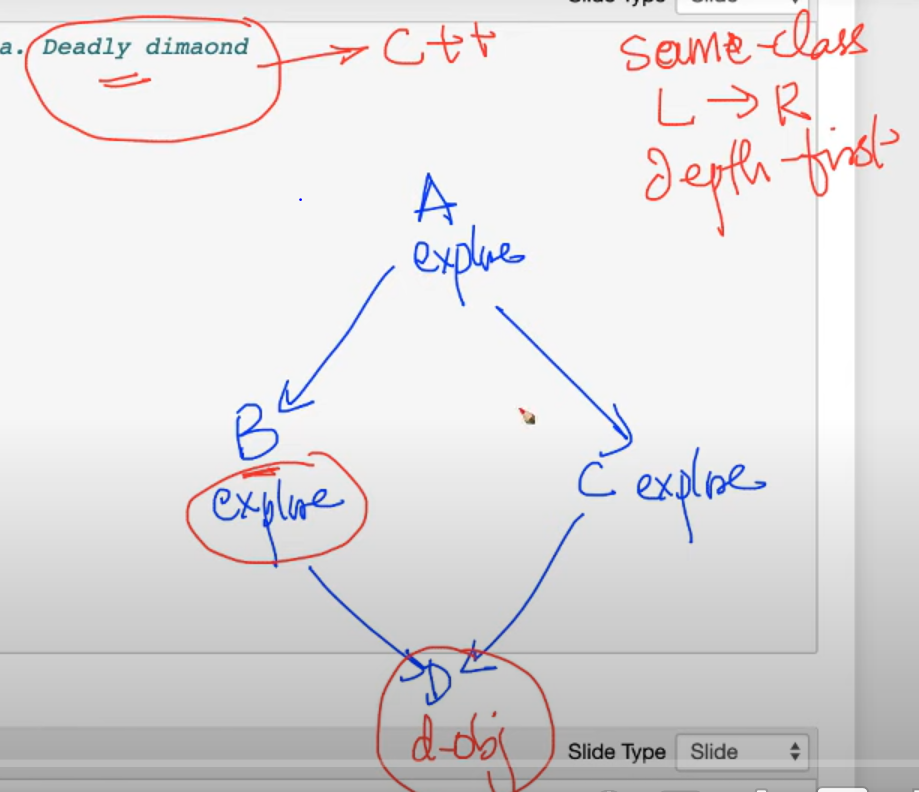 Slide Type Slide
a. Deadly dimaond
C++
same-class
L → R
depth-first
A
explore
B
explore
C explore
D
d-obj
Slide Type Slide